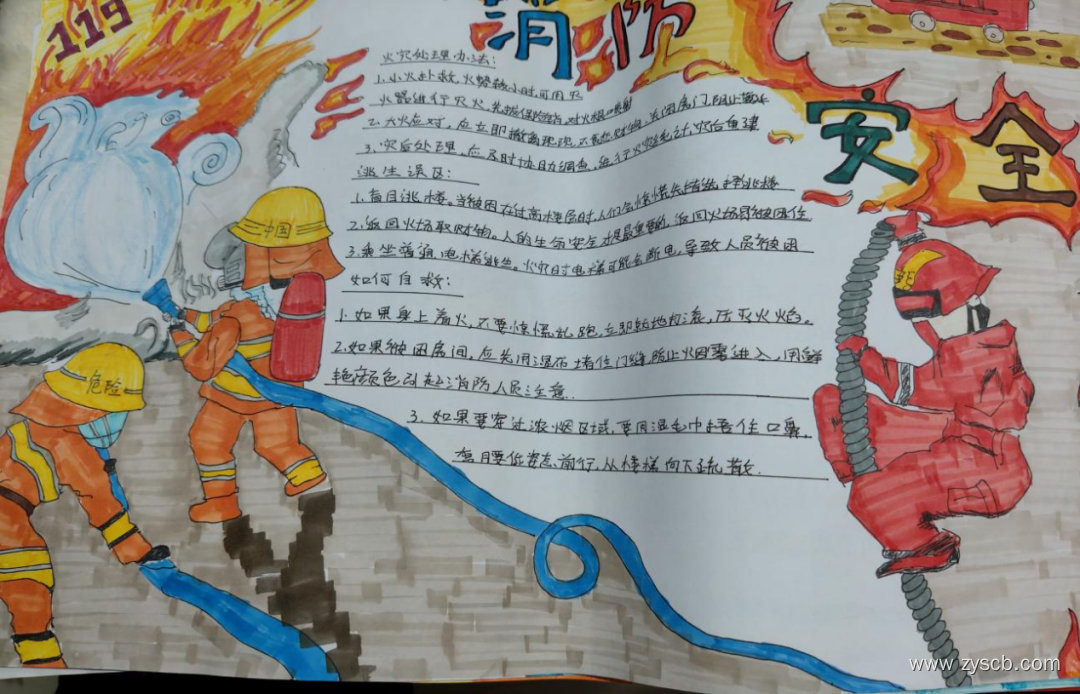 119
消防
安全
火灾处理办法:
1.小火扑救,火势较小时可用灭
火器进行灭火,先拔保险销,对火根喷射
2.大火应对,应立即撤离现场,不贪恋财物,关闭房门,阻止蔓延
3.灾后处理,应及时协助调查,进行火灾统计,灾后重建
逃生误区:
1.盲目跳楼。当被困在过高楼层时,人们会惊慌失措选择跳楼
2.返回火场取财物。人的生命安全才是最重要的,返回火场易被困住
3.乘坐普通电梯逃生。火灾时电梯可能会断电,导致人员被困
如何自救:
1.如果身上着火,不要惊慌乱跑,立即就地打滚,压灭火焰。
2.如果被困房间,应先用湿布堵住门缝,防止烟雾进入,用鲜
艳颜色引起消防人员注意.
3.如果要穿过浓烟区域,要用湿毛巾捂住口鼻,
弯腰低姿态前行,从楼梯向下疏散.
中国
危险
www.zyscb.com